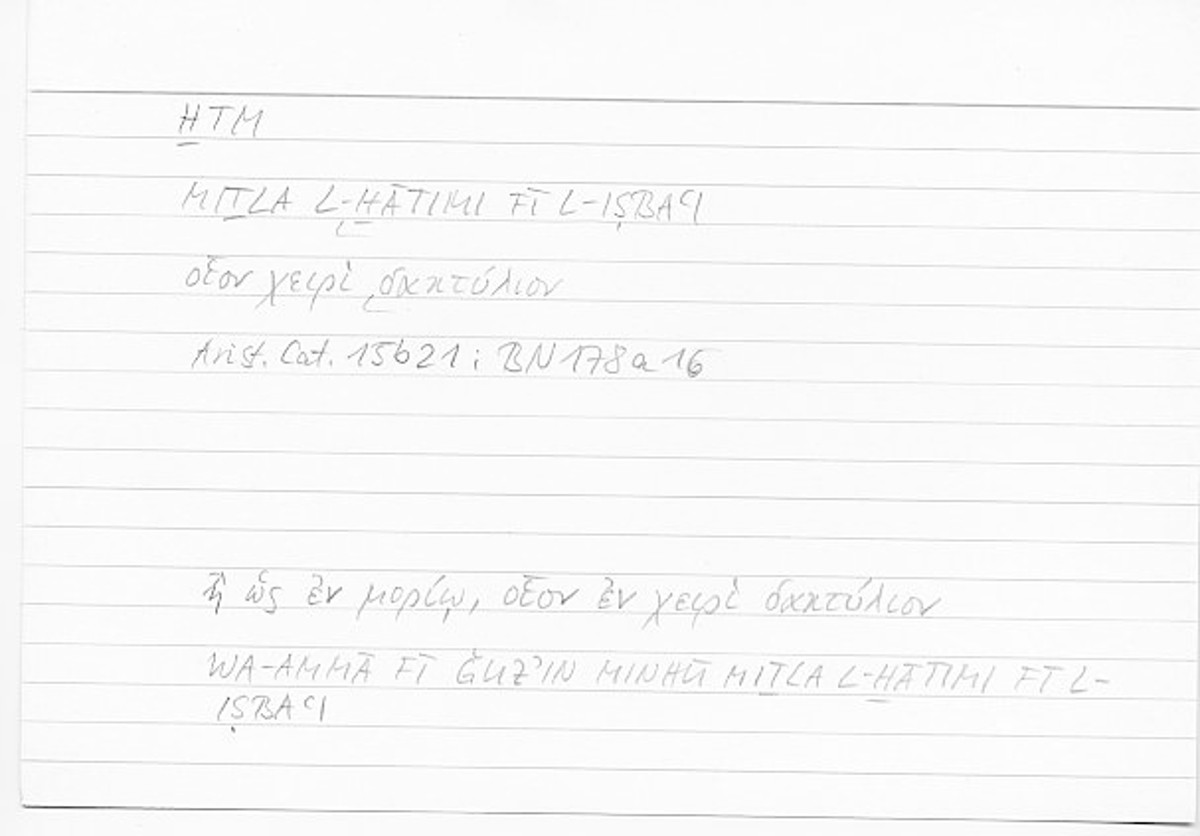 ḪTM
MIṮLA L-ḪĀTIMI FĪ L-IṢBAʿI
οἷον χειρὶ δακτύλιον
Arist. Cat. 15b21; BN 178a16
ἢ ὡς ἐν μορίῳ, οἷον ἐν χειρὶ δακτύλιον
WA-AMMĀ FĪ ǦUZʾIN MINHŪ MIṮLA L-ḪĀTIMI FĪ L-
IṢBAʿI